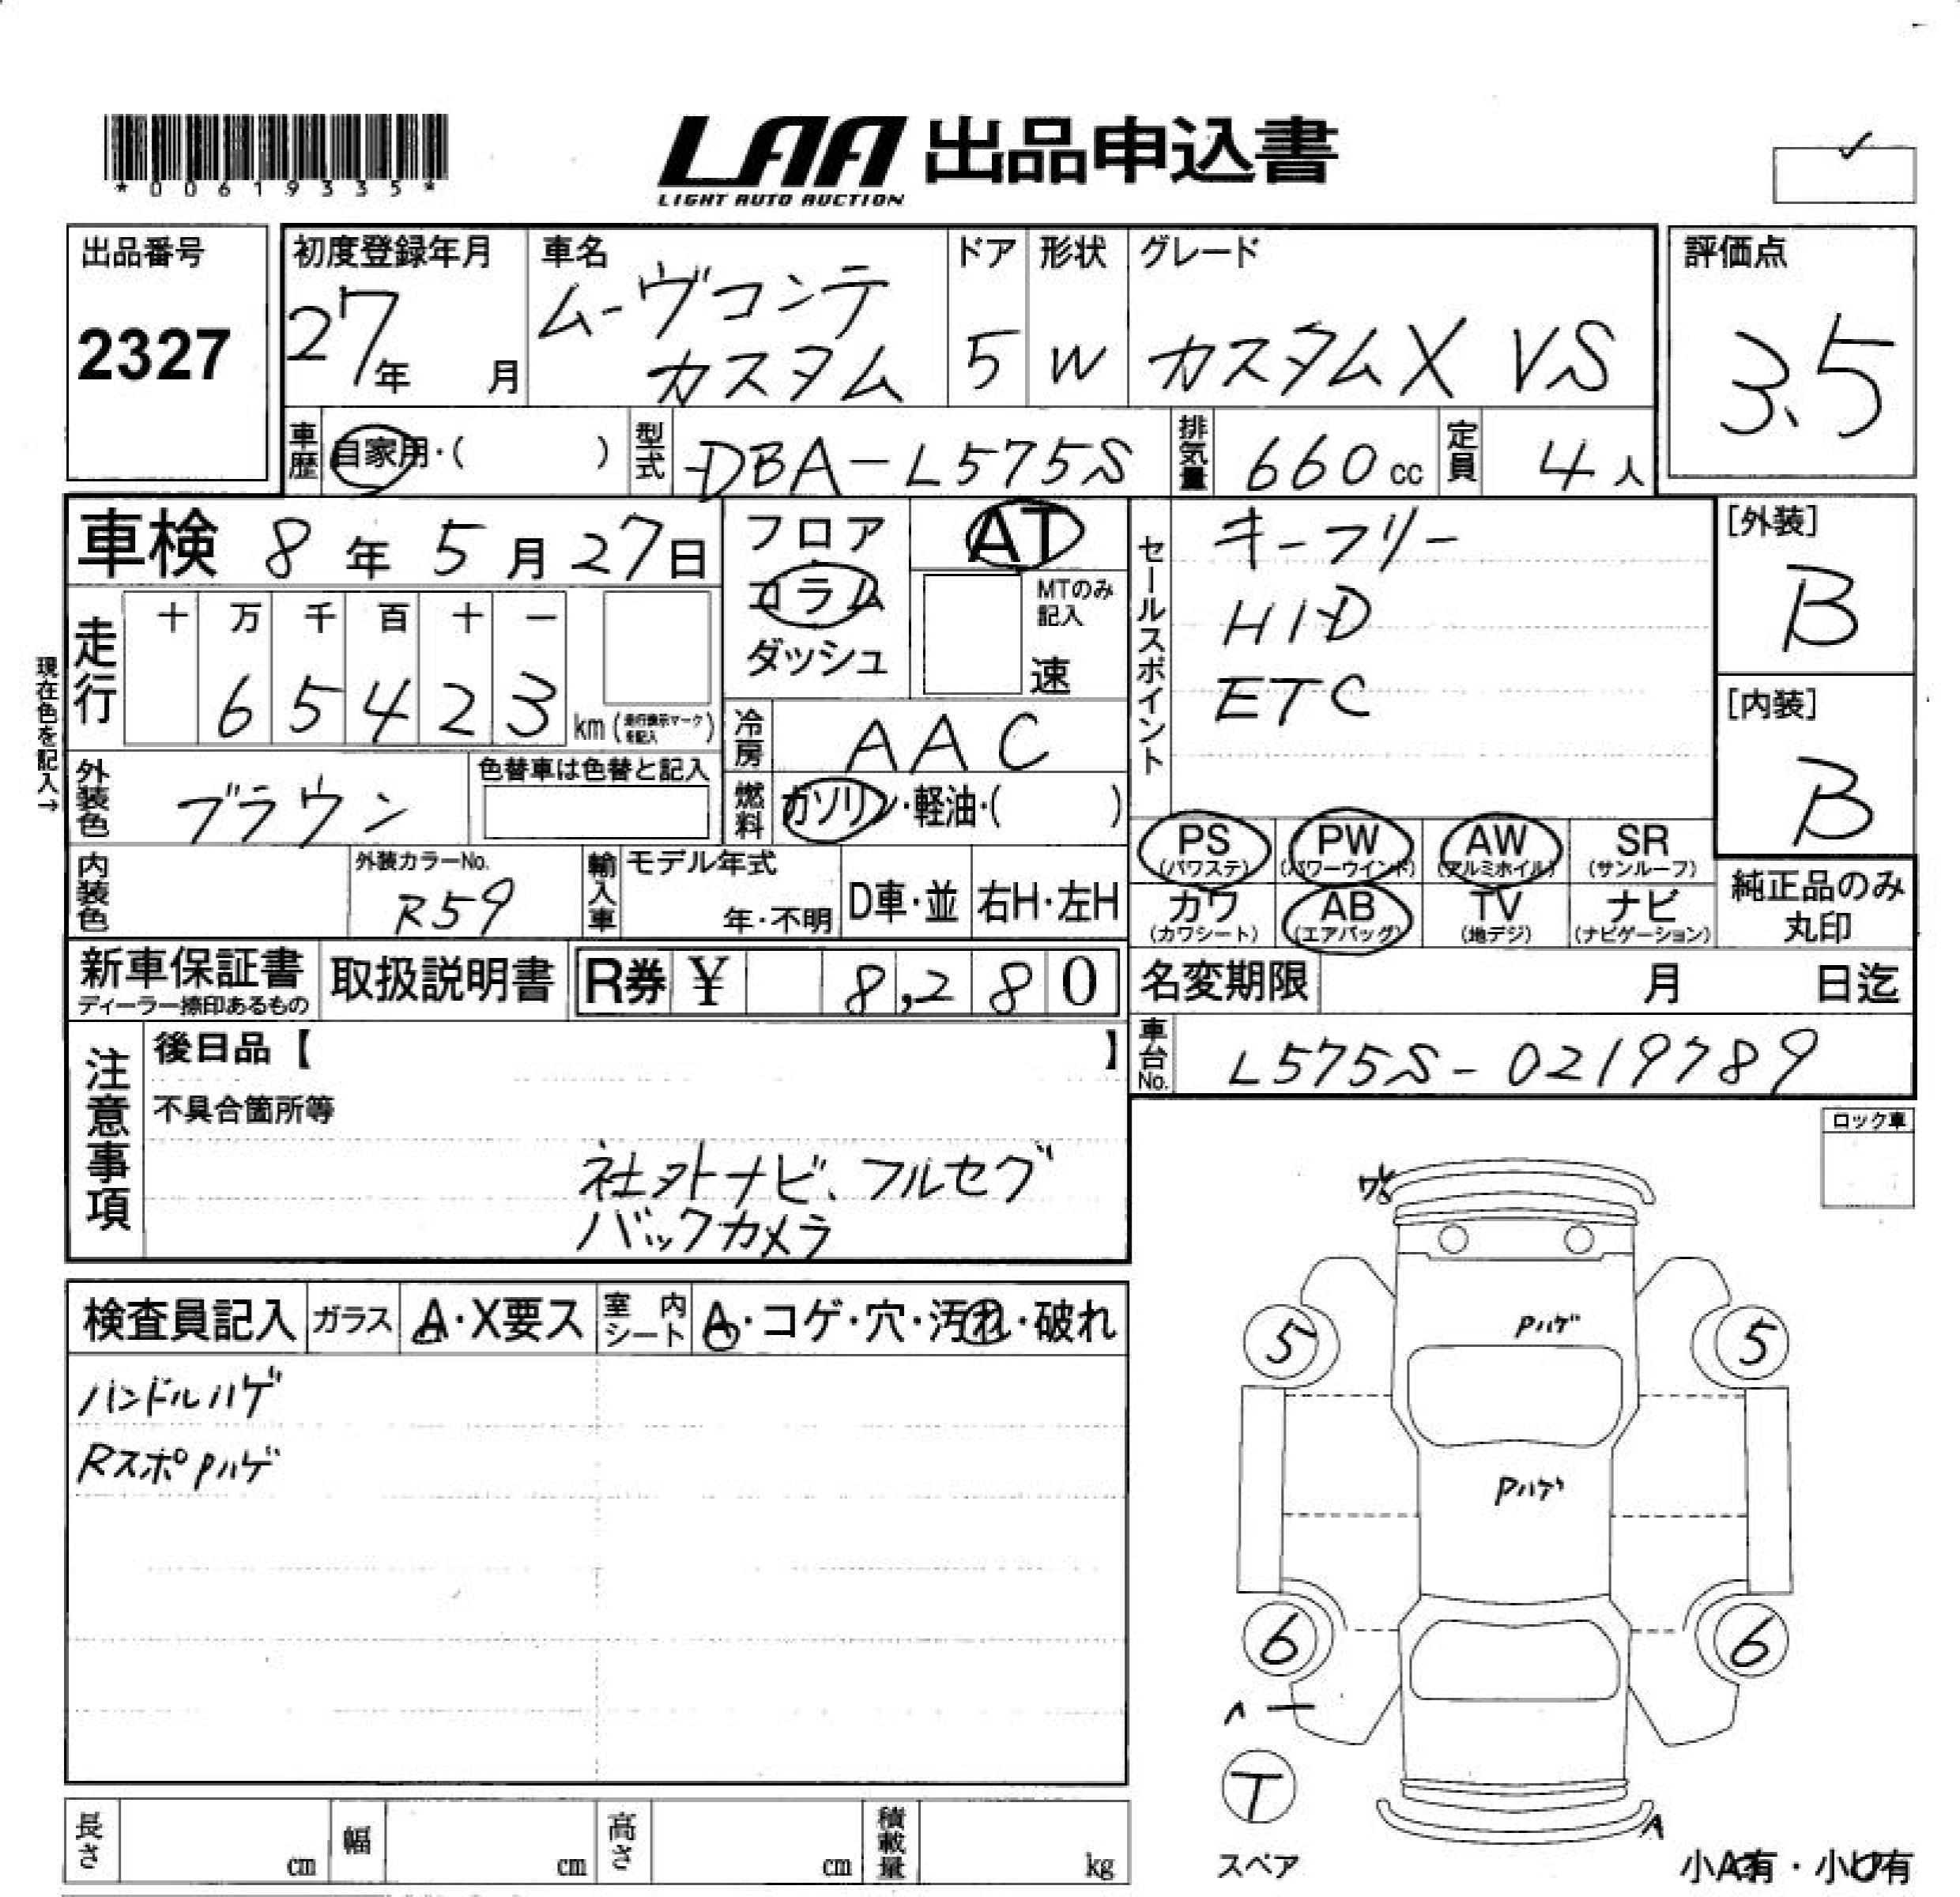 *00619335*
LAA 出品申込書
LIGHT AUTO AUCTION
出品番号
2327
初度登録年月
27年 月
車名
ムーヴコンテ
カスタム
ドア
5
形状
W
グレード
カスタムX VS
評価点
3.5
車歴 自家用・( )
型式 DBA-L575S
排気量 660cc
定員 4人
車検 8年 5月 27日
フロア
コラム
ダッシュ
AT
MTのみ記入
速
セールスポイント
キーフリー
HID
ETC
[外装]
B
[内装]
B
現在色を記入→
走行
十 万 千 百 十 一
6 5 4 2 3 km
冷房 AAC
燃料 ガソリン・軽油・( )
外装色 ブラウン
色替車は色替と記入
内装色
外装カラーNo.
R59
輸入車
モデル年式
年・不明
D車・並
右H・左H
PS (パワステ)
PW (パワーウインド)
AW (アルミホイル)
SR (サンルーフ)
カワ (カワシート)
AB (エアバッグ)
TV (地デジ)
ナビ (ナビゲーション)
純正品のみ
丸印
新車保証書
ディーラー捺印あるもの
取扱説明書
R券 ¥ 8,280
名変期限 月 日迄
車台No. L575S-0219789
注意事項
後日品【 】
不具合箇所等
社外ナビ、フルセグ
バックカメラ
ロック車
検査員記入
ガラス A・X要ス
室内シート A・コゲ・穴・汚れ・破れ
ハンドルハゲ
RスポPハゲ
Pハゲ
5 5
Pハゲ
6 6
T
スペア
A
小A有・小U有
長さ cm
幅 cm
高さ cm
積載量 kg